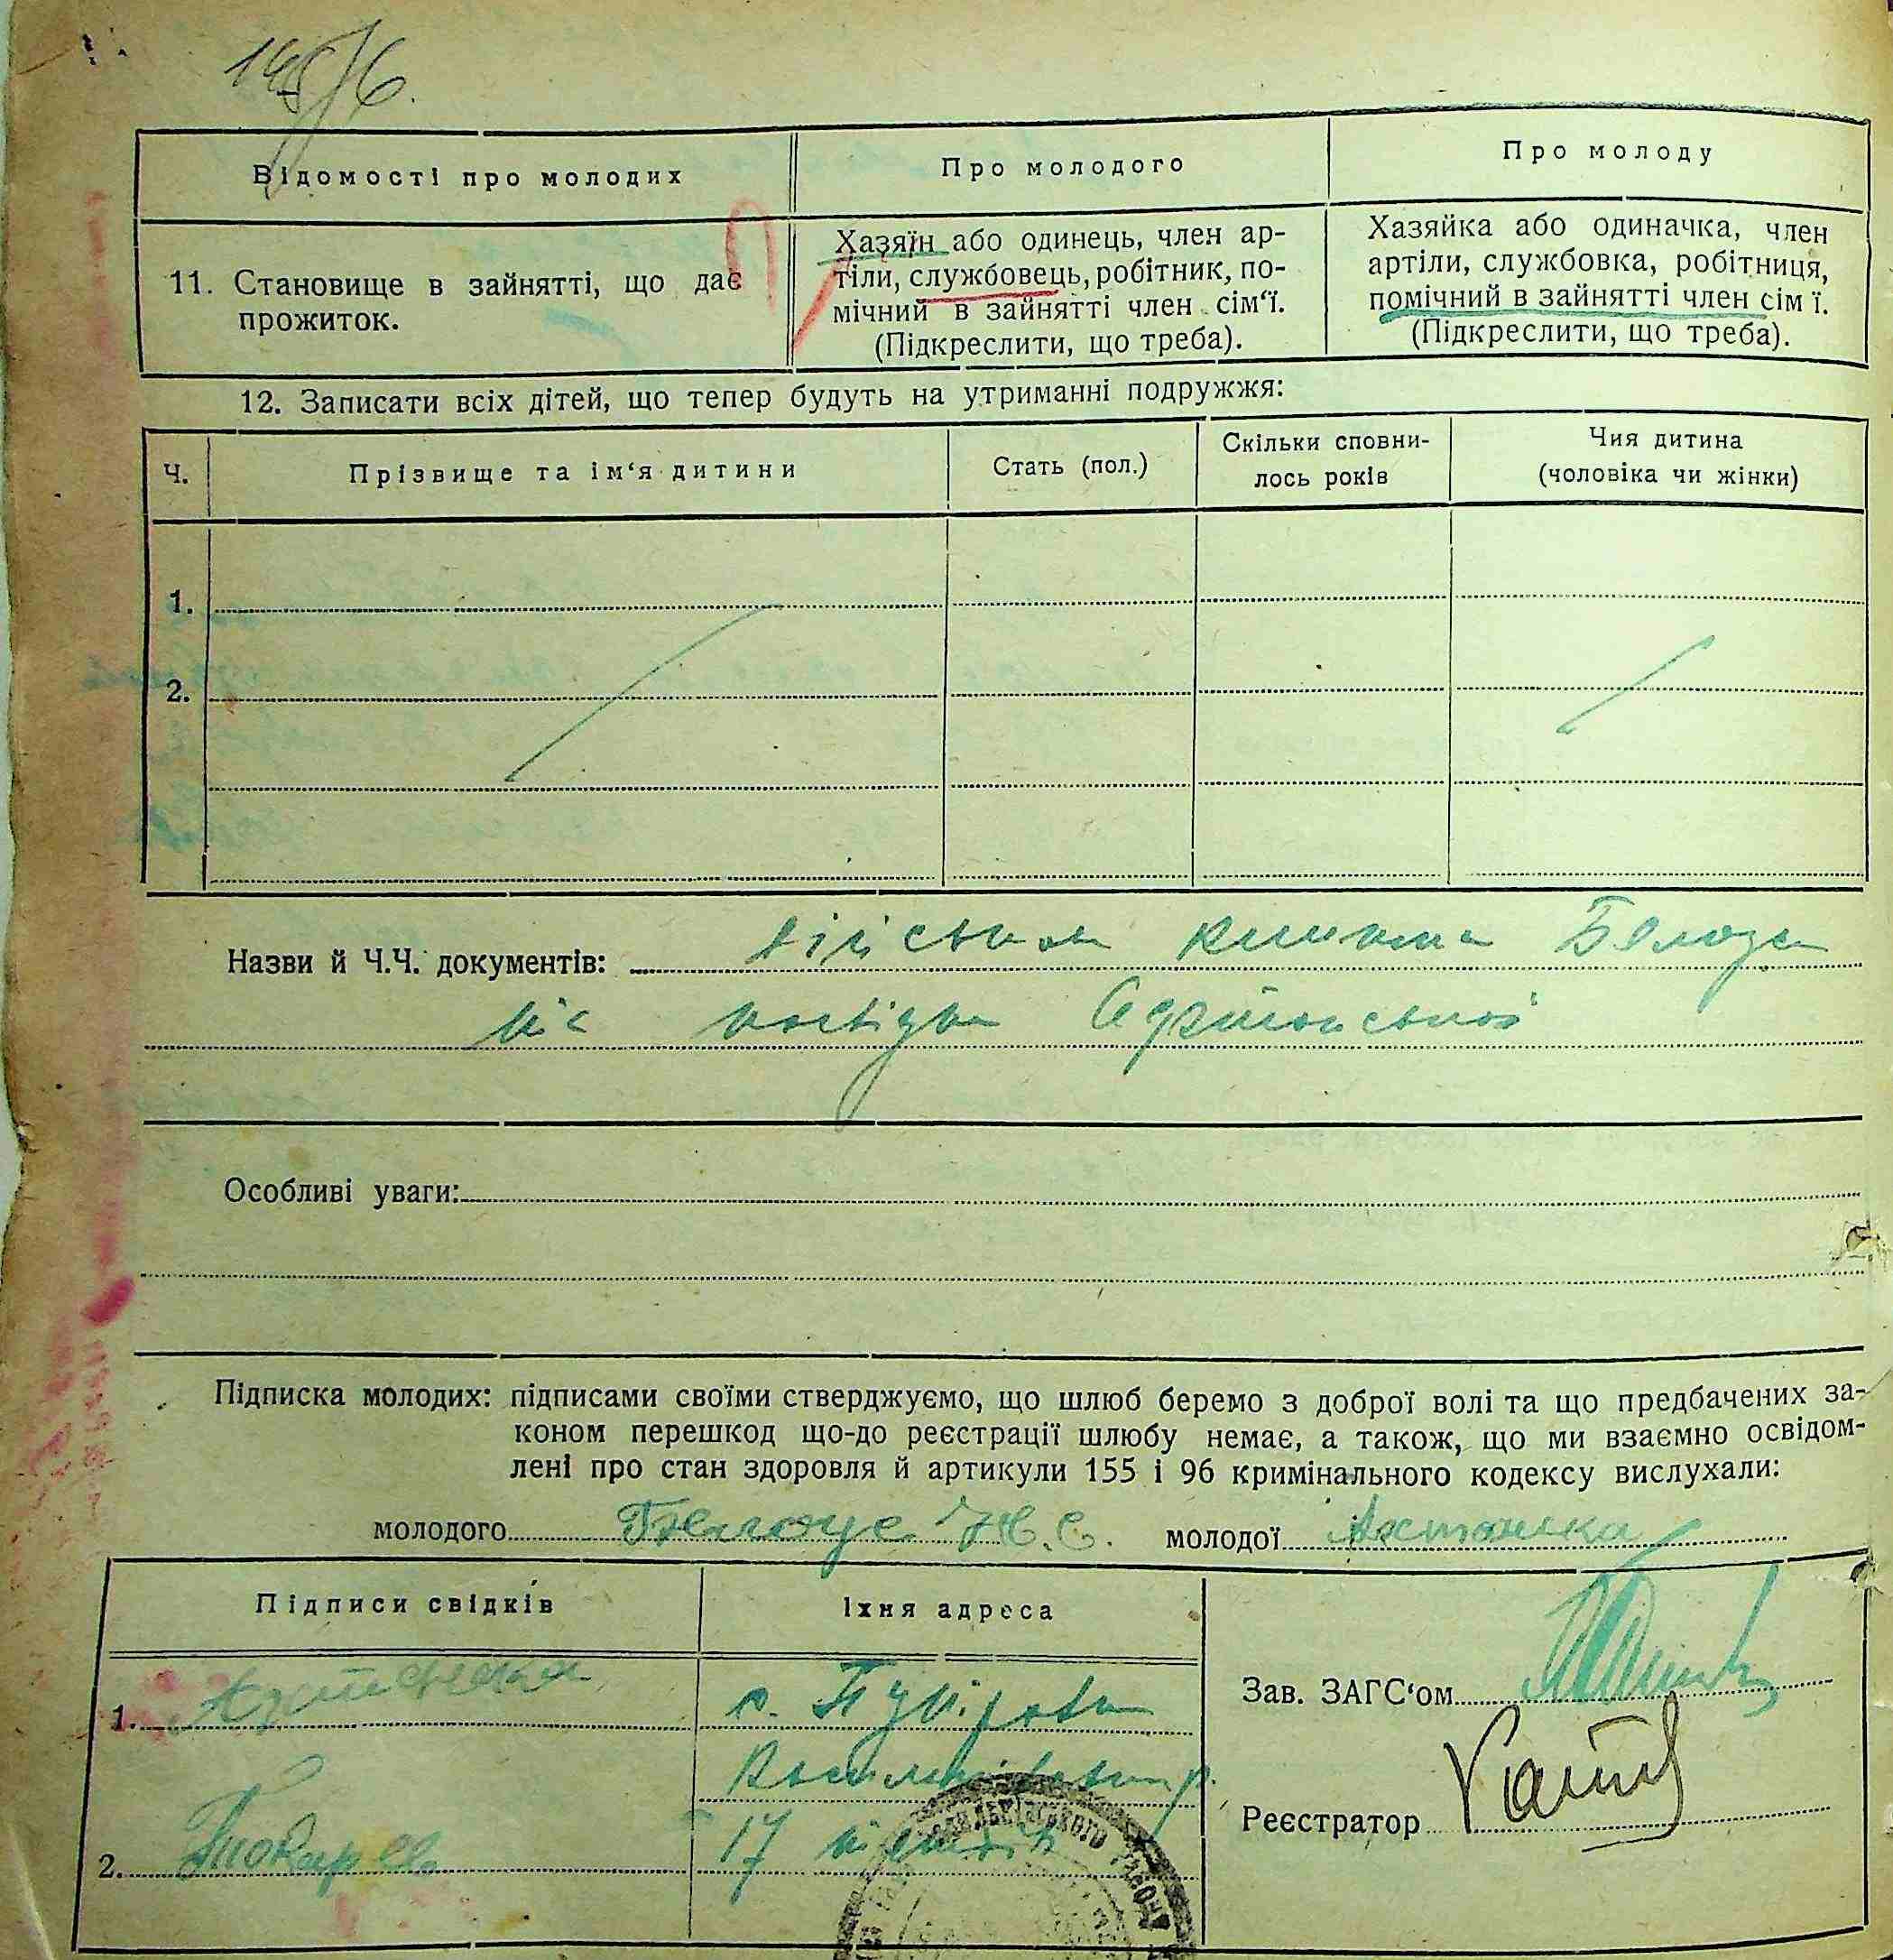 Відомості про молодих
Про молодого
Про молоду
11. Становище в зайнятті, що дає
прожиток.
Хазяїн або одинець, член ар-
тіли, службовець, робітник, по-
мічний в зайнятті член сім‘ї.
(Підкреслити, що треба).
Хазяйка або одиначка, член
артіли, службовка, робітниця,
помічний в зайнятті член сім ї.
(Підкреслити, що треба).
12. Записати всіх дітей, що тепер будуть на утриманні подружжя:
Ч.
Прізвище та ім‘я дитини
Стать (пол.)
Скільки сповни-
лось років
Чия дитина
(чоловіка чи жінки)
1.
2.
Назви й Ч.Ч. документів: військова книжка
Особливі уваги:
Підписка молодих: підписами своїми стверджуємо, що шлюб беремо з доброї волі та що предбачених за-
коном перешкод що-до реєстрації шлюбу немає, а також, що ми взаємно освідом-
лені про стан здоровля й артикули 155 і 96 кримінального кодексу вислухали:
молодого Белоус Н. С. молодої
Підписи свідків
Їхня адреса
1.
с.
2.
17
Зав. ЗАГС‘ом
Реєстратор